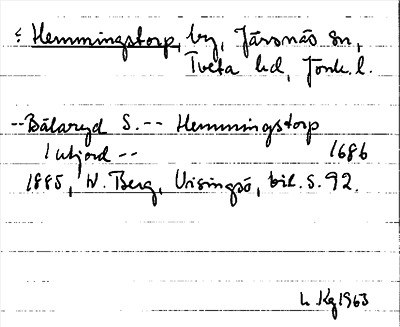 < Hemmingstorp, by, Järsnäs sn,
Tveta hd, Jönk. l.
-- Bälaryd S. -- Hemmingstorp
1 utjord -- 1686
1885, W. Berg, Visingsö, bil. S. 92.
L Kg 1963